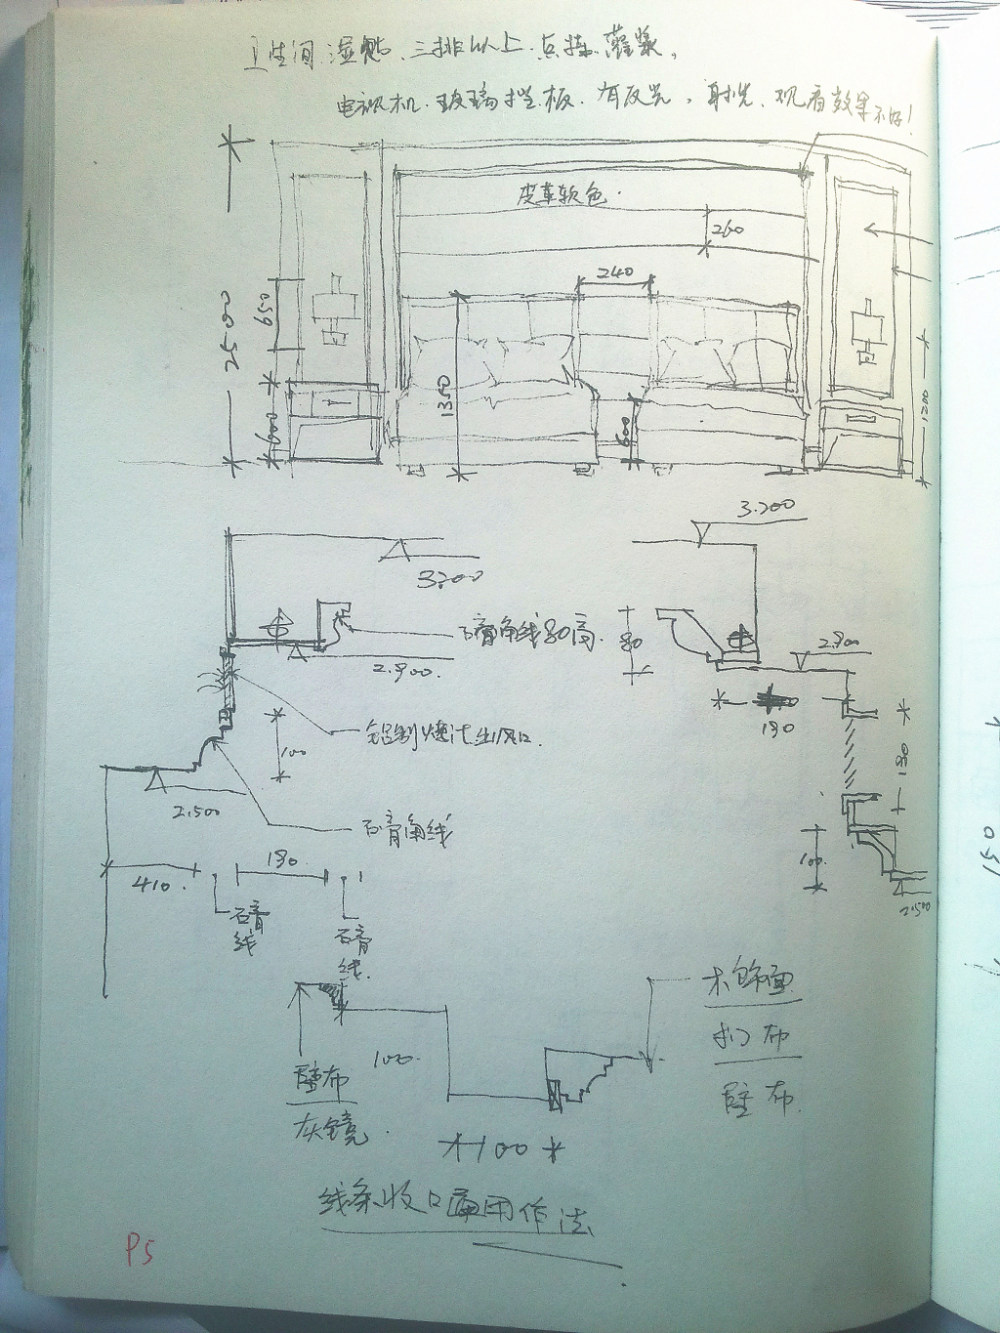 卫生间湿贴、三排以上、点挂、灌浆。
电视机、玻璃挡板、有反光，射光、观看效果不好!
皮革软包
260
240
650
2500
1350
600
600
1200
3.200
3.200
石膏角线80高
80
2.900
2.900
180
铝制烤漆出风口
100
180
2.500
石膏角线
100
2.500
410
180
石膏线
石膏线
木饰面
扪布
壁布
100
壁布
灰镜
100
线条收口通用作法
P5